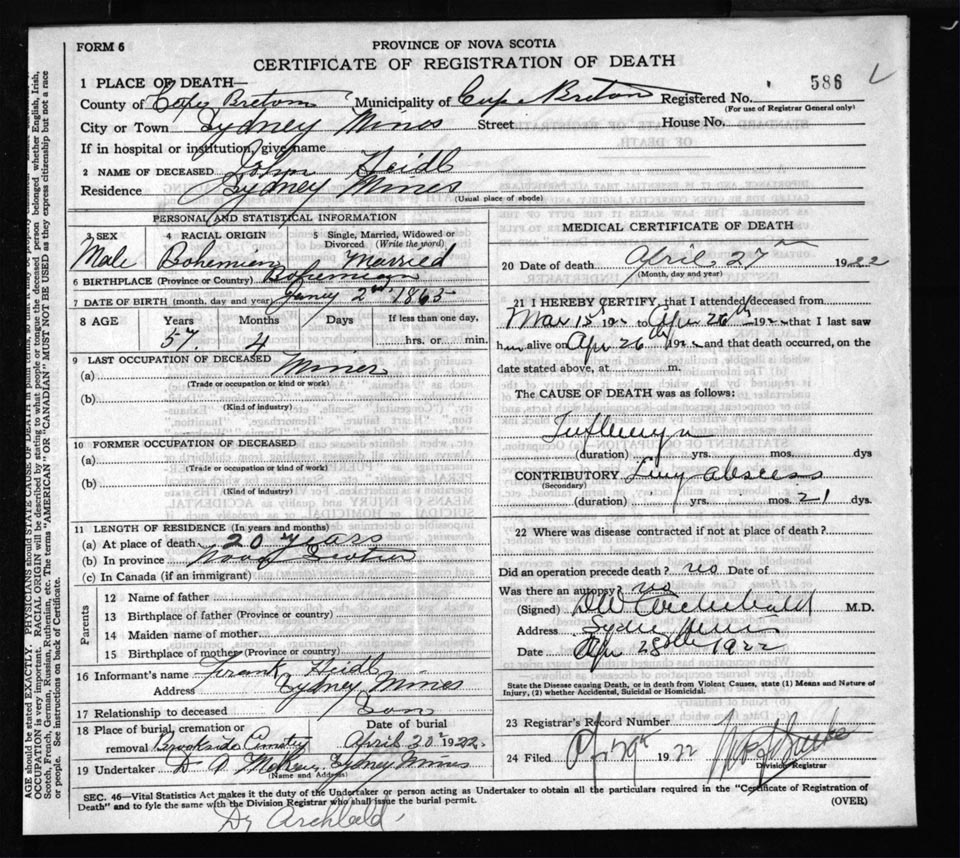 FORM 6
PROVINCE OF NOVA SCOTIA
CERTIFICATE OF REGISTRATION OF DEATH
586
1 PLACE OF DEATH—
County of Cape Breton Municipality of Cape Breton Registered No.
(For use of Registrar General only)
City or Town Sydney Mines Street House No.
If in hospital or institution, give name
2 NAME OF DECEASED John Heidl
Residence Sydney Mines
(Usual place of abode)
PERSONAL AND STATISTICAL INFORMATION
3 SEX
Male
4 RACIAL ORIGIN
Bohemian
5 Single, Married, Widowed or Divorced (Write the word)
Married
6 BIRTHPLACE (Province or Country) Bohemian
7 DATE OF BIRTH (month, day and year) Janey 2nd 1865
8 AGE Years Months Days If less than one day,
57 4 hrs. or min.
9 LAST OCCUPATION OF DECEASED
(a) Miner
(Trade or occupation or kind or work)
(b)
(Kind of industry)
10 FORMER OCCUPATION OF DECEASED
(a)
(Trade or occupation or kind or work)
(b)
(Kind of industry)
11 LENGTH OF RESIDENCE (In years and months)
(a) At place of death 20 years
(b) In province Nova Scotia
(c) In Canada (if an immigrant)
Parents
12 Name of father
13 Birthplace of father (Province or country)
14 Maiden name of mother
15 Birthplace of mother (Province or country)
16 Informant's name Frank Heidl
Address Sydney Mines
17 Relationship to deceased Son
18 Place of burial, cremation or removal Brookside Cemetry
Date of burial
April 30 1922
19 Undertaker Sydney Mines
(Name and Address)
MEDICAL CERTIFICATE OF DEATH
20 Date of death April 27 1922
(Month, day and year)
21 I HEREBY CERTIFY, that I attended deceased from
Mar 15 192 to Apr 26th 192 that I last saw
him alive on Apr 26th 1922 and that death occurred, on the
date stated above, at m.
The CAUSE OF DEATH was as follows:
(duration) yrs. mos. dys
CONTRIBUTORY Lung abscess
(Secondary)
(duration) yrs. mos. 21 dys.
22 Where was disease contracted if not at place of death?
Did an operation precede death? no Date of
Was there an autopsy? no
(Signed) DW Archibald M.D.
Address Sydney Mines
Date Apr 28th 1922
State the Disease causing Death, or in death from Violent Causes, state (1) Means and Nature of
Injury, (2) whether Accidental, Suicidal or Homicidal.
23 Registrar's Record Number
24 Filed 1922
Division Registrar
SEC. 46—Vital Statistics Act makes it the duty of the Undertaker or person acting as Undertaker to obtain all the particulars required in the "Certificate of Registration of
Death" and to fyle the same with the Division Registrar who shall issue the burial permit.
(OVER)
Dr Archbald
AGE should be stated EXACTLY. PHYSICIANS should STATE CAUSE OF DEATH in plain terms, so that it may be properly
OCCUPATION is very important. RACIAL ORIGIN will be described by stating to what people or tongue the deceased person belonged whether English, Irish,
Scotch, French, German, Russian, Ruthenian, etc. The terms "AMERICAN" OR "CANADIAN" MUST NOT BE USED as they express citizenship but not a race
or people. See instructions on back of Certificate.